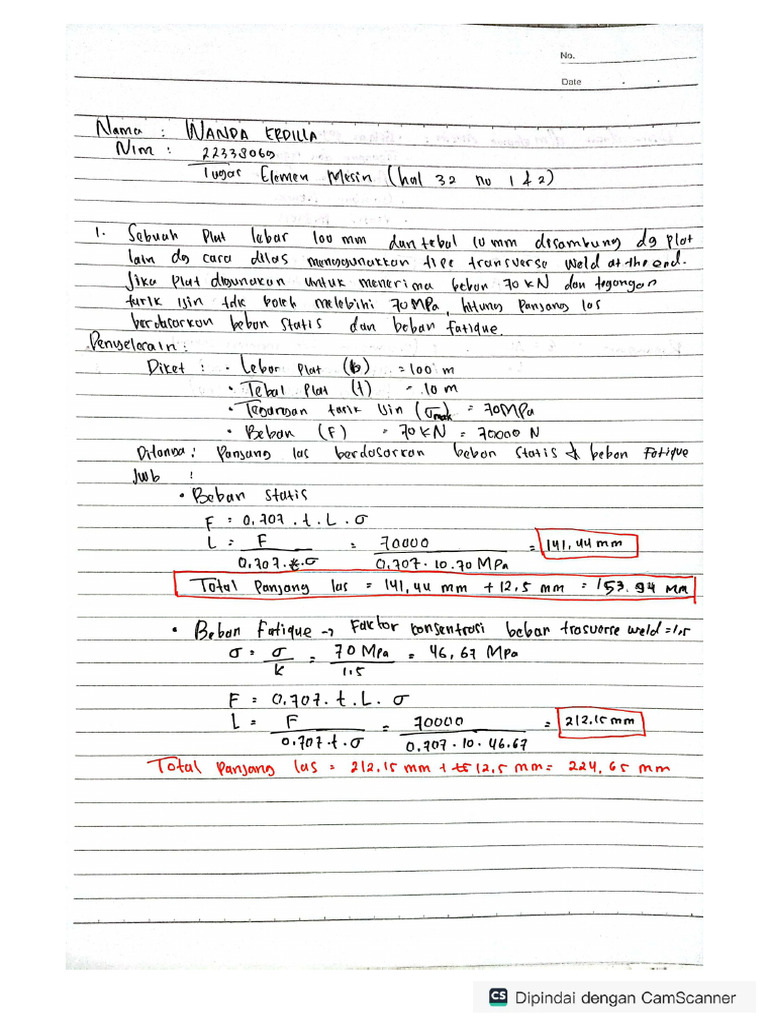 No.
Date
Nama : WANDA ERDILLA
Nim : 22338069
Tugas Elemen Mesin (hal 32 no 1 & 2)
1. Sebuah Plat lebar 100 mm dan tebal 10 mm disambung dg plat
lain dg cara dilas menggunakkan tipe transverse weld at the end.
Jika plat digunakan untuk menerima beban 70 kN dan tegangan
tarik ijin tdk boleh melebihi 70 MPa, hitung panjang las
berdasarkan beban statis dan beban fatique.
Penyelesain :
Diket : • Lebar Plat (b) = 100 m
• Tebal Plat (t) = 10 m
• Tegangan tarik Uin (σmak) = 70MPa
• Beban (F) = 70 kN = 70000 N
Ditanya : Panjang las berdasarkan beban statis & beban Fatique
Jwb :
• Beban Statis
F = 0,707 . t . L . σ
L = F / 0,707 . t . σ = 70000 / 0,707 . 10 . 70 MPa = 141,44 mm
Total Panjang las = 141,44 mm + 12,5 mm = 153.94 mm
• Beban Fatique → Faktor konsentrasi beban trasverse weld = 1,5
σ = σ / k = 70 Mpa / 1.5 = 46,67 MPa
F = 0,707 . t . L . σ
L = F / 0,707 . t . σ = 70000 / 0,707 . 10 . 46.67 = 212.15 mm
Total Panjang las = 212.15 mm + 12,5 mm = 224,65 mm
CS Dipindai dengan CamScanner